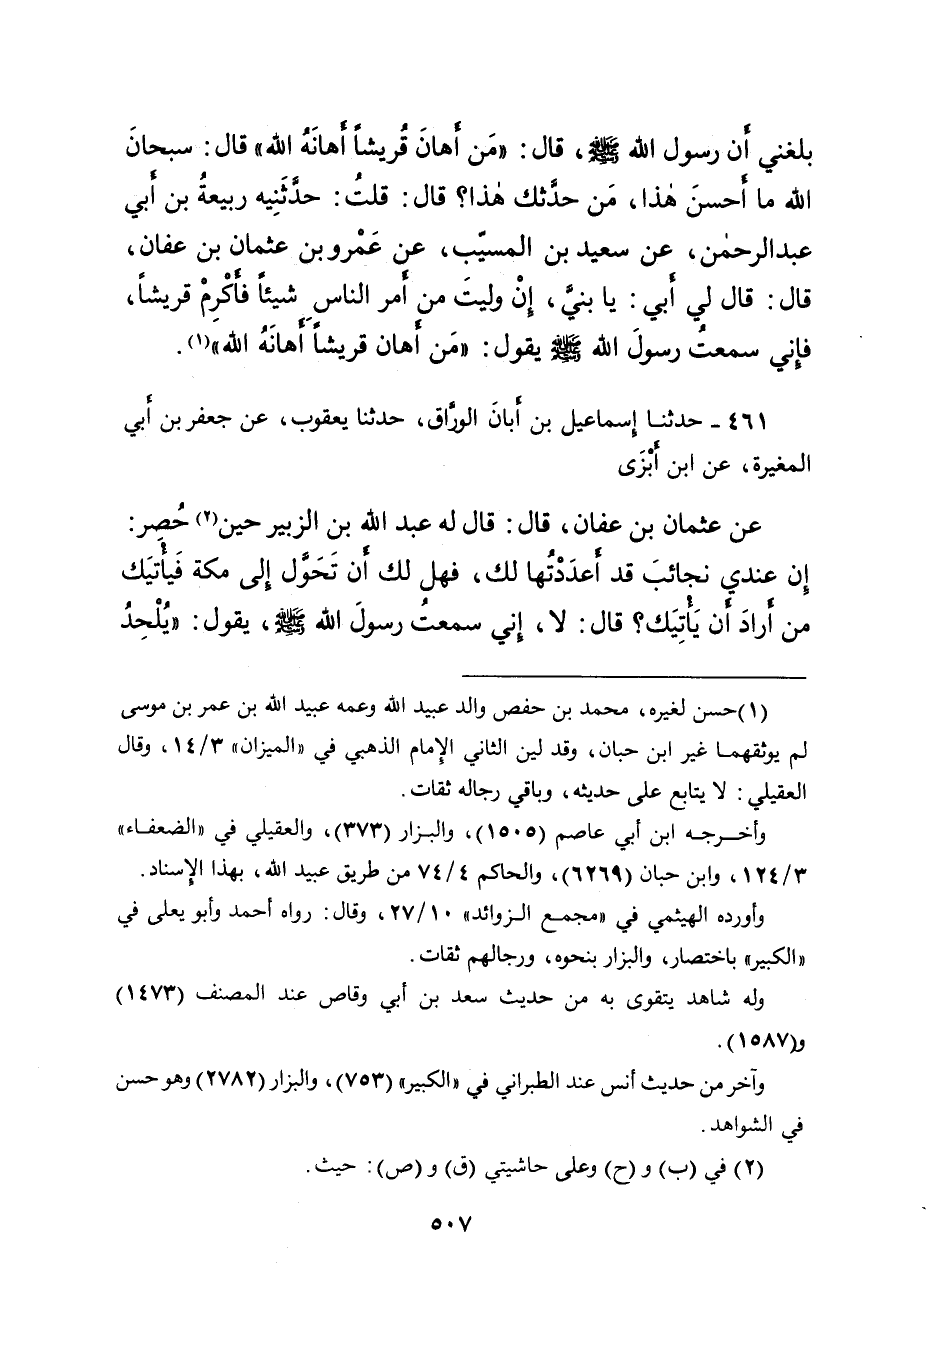 بلغني أَن رسول الله ﷺ، قال: «مَن أَهانَ قُريشاً أَهانَهُ الله» قال: سبحانَ
الله ما أَحسنَ هٰذا، مَن حدَّثك هٰذا؟ قال: قلتُ: حدَّثَنِيه ربيعةُ بن أَبي
عبدالرحمٰن، عن سعيد بن المسيّب، عن عَمْرو بن عثمان بن عفان،
قال: قال لي أَبي: يا بنيَّ، إِنْ وليتَ من أَمر الناس شيئاً فأَكْرِمْ قريشاً،
فإِني سمعتُ رسولَ الله ﷺ يقول: «مَن أَهان قريشاً أَهانَهُ الله»(١).
٤٦١ ـ حدثنا إسماعيل بن أَبانَ الورَّاق، حدثنا يعقوب، عن جعفر بن أَبي
المغيرة، عن ابن أَبْزَى
عن عثمان بن عفان، قال: قال له عبد الله بن الزبير حين(٢) حُصِر:
إِن عندي نجائبَ قد أَعدَدْتُها لك، فهل لك أَن تَحَوَّل إِلى مكة فَيأْتيَك
من أَرادَ أَن يَأْتِيَك؟ قال: لا، إِني سمعتُ رسولَ الله ﷺ، يقول: «يُلْحِدُ
(١)حسن لغيره، محمد بن حفص والد عبيد الله وعمه عبيد الله بن عمر بن موسى
لم يوثقهما غير ابن حبان، وقد لين الثاني الإمام الذهبي في «الميزان» ١٤/٣، وقال
العقيلي: لا يتابع على حديثه، وباقي رجاله ثقات.
وأخرجه ابن أبي عاصم (١٥٠٥)، والبزار (٣٧٣)، والعقيلي في «الضعفاء»
١٢٤/٣، وابن حبان (٦٢٦٩)، والحاكم ٧٤/٤ من طريق عبيد الله، بهذا الإسناد.
وأورده الهيثمي في «مجمع الزوائد» ٢٧/١٠، وقال: رواه أحمد وأبو يعلى في
«الكبير» باختصار، والبزار بنحوه، ورجالهم ثقات.
وله شاهد يتقوى به من حديث سعد بن أبي وقاص عند المصنف (١٤٧٣)
و(١٥٨٧).
وآخر من حديث أنس عند الطبراني في «الكبير» (٧٥٣)، والبزار (٢٧٨٢) وهو حسن
في الشواهد.
(٢) في (ب) و (ح) وعلى حاشيتي (ق) و (ص): حيث.
٥٠٧